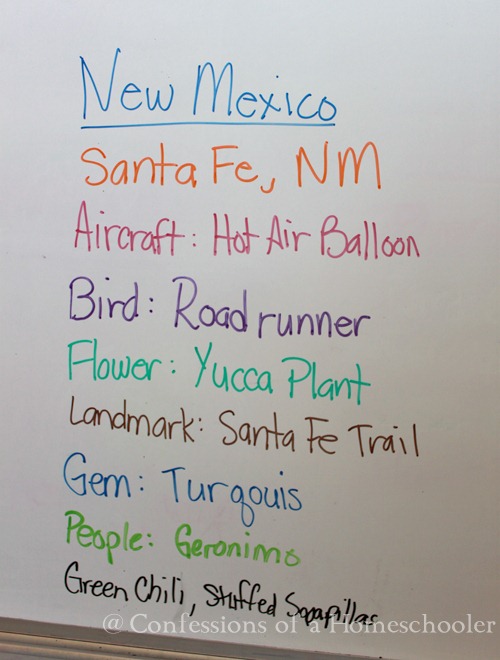 New Mexico
Santa Fe, NM
Aircraft: Hot Air Balloon
Bird: Road runner
Flower: Yucca Plant
Landmark: Santa Fe Trail
Gem: Turqouis
People: Geronimo
Green Chili, Stuffed Sopapillas
@ Confessions of a Homeschooler